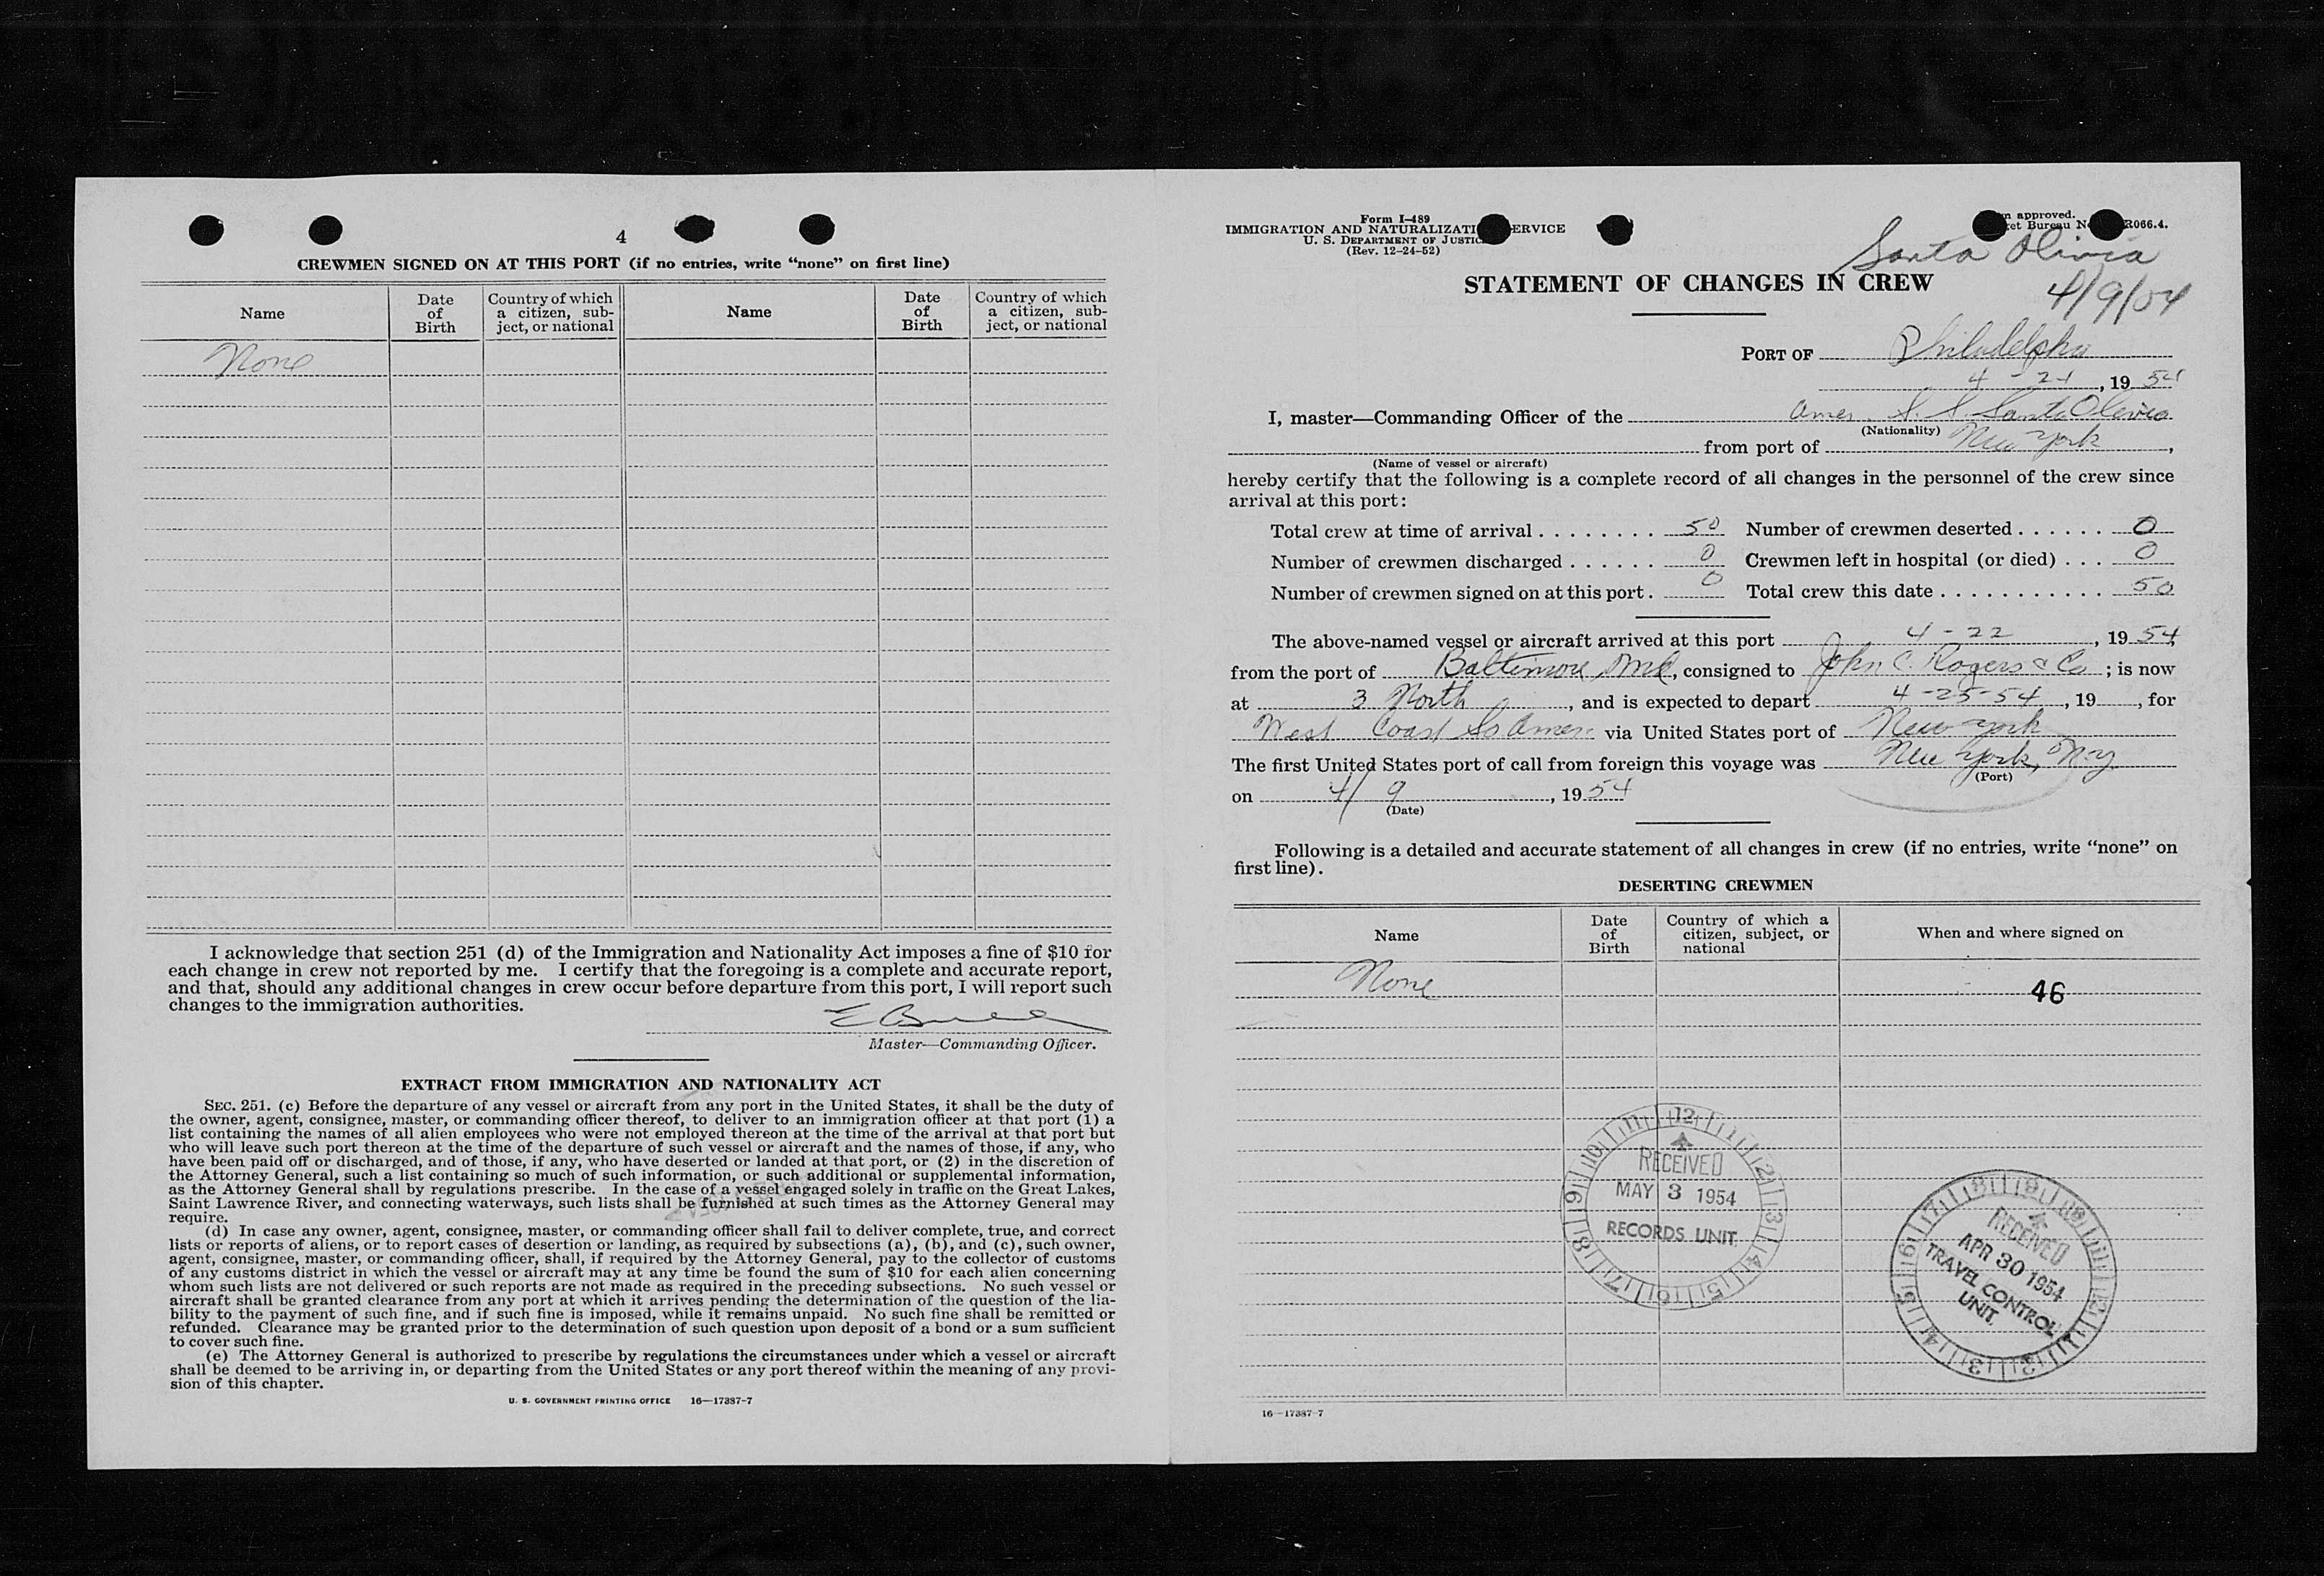 4
CREWMEN SIGNED ON AT THIS PORT (if no entries, write “none” on first line)
Name
Date of Birth
Country of which a citizen, subject, or national
Name
Date of Birth
Country of which a citizen, subject, or national
None
I acknowledge that section 251 (d) of the Immigration and Nationality Act imposes a fine of $10 for
each change in crew not reported by me. I certify that the foregoing is a complete and accurate report,
and that, should any additional changes in crew occur before departure from this port, I will report such
changes to the immigration authorities.
Master—Commanding Officer.
EXTRACT FROM IMMIGRATION AND NATIONALITY ACT
SEC. 251. (c) Before the departure of any vessel or aircraft from any port in the United States, it shall be the duty of
the owner, agent, consignee, master, or commanding officer thereof, to deliver to an immigration officer at that port (1) a
list containing the names of all alien employees who were not employed thereon at the time of the arrival at that port but
who will leave such port thereon at the time of the departure of such vessel or aircraft and the names of those, if any, who
have been paid off or discharged, and of those, if any, who have deserted or landed at that port, or (2) in the discretion of
the Attorney General, such a list containing so much of such information, or such additional or supplemental information,
as the Attorney General shall by regulations prescribe. In the case of a vessel engaged solely in traffic on the Great Lakes,
Saint Lawrence River, and connecting waterways, such lists shall be furnished at such times as the Attorney General may
require.
(d) In case any owner, agent, consignee, master, or commanding officer shall fail to deliver complete, true, and correct
lists or reports of aliens, or to report cases of desertion or landing, as required by subsections (a), (b), and (c), such owner,
agent, consignee, master, or commanding officer, shall, if required by the Attorney General, pay to the collector of customs
of any customs district in which the vessel or aircraft may at any time be found the sum of $10 for each alien concerning
whom such lists are not delivered or such reports are not made as required in the preceding subsections. No such vessel or
aircraft shall be granted clearance from any port at which it arrives pending the determination of the question of the lia-
bility to the payment of such fine, and if such fine is imposed, while it remains unpaid. No such fine shall be remitted or
refunded. Clearance may be granted prior to the determination of such question upon deposit of a bond or a sum sufficient
to cover such fine.
(e) The Attorney General is authorized to prescribe by regulations the circumstances under which a vessel or aircraft
shall be deemed to be arriving in, or departing from the United States or any port thereof within the meaning of any provi-
sion of this chapter.
U. S. GOVERNMENT PRINTING OFFICE 16—17387-7
Form I-489
IMMIGRATION AND NATURALIZATI ERVICE
U. S. DEPARTMENT OF JUSTIC
(Rev. 12-24-52)
n approved.
et Bureau N R066.4.
Santa Olivia
4/9/54
STATEMENT OF CHANGES IN CREW
PORT OF Philadelphia
4 - 21, 19 54
I, master—Commanding Officer of the Amer. S. S. Santa Olivia
(Nationality)
from port of New York,
(Name of vessel or aircraft)
hereby certify that the following is a complete record of all changes in the personnel of the crew since
arrival at this port:
Total crew at time of arrival 50 Number of crewmen deserted 0
Number of crewmen discharged 0 Crewmen left in hospital (or died) 0
Number of crewmen signed on at this port 0 Total crew this date 50
The above-named vessel or aircraft arrived at this port 4 - 22, 19 54,
from the port of Baltimore Md, consigned to John C. Rogers & Co; is now
at 3 North, and is expected to depart 4-25-54, 19 , for
West Coast So Amer. via United States port of New York
The first United States port of call from foreign this voyage was New York, N.Y.
(Port)
on 4/9, 19 54
(Date)
Following is a detailed and accurate statement of all changes in crew (if no entries, write “none” on
first line).
DESERTING CREWMEN
Name
Date of Birth
Country of which a citizen, subject, or national
When and where signed on
None
46
12 1 2 3 4 5 6 7 8 9 10 11
RECEIVED
MAY 3 1954
RECORDS UNIT
RECEIVED
APR 30 1954
TRAVEL CONTROL
UNIT
16—17387-7